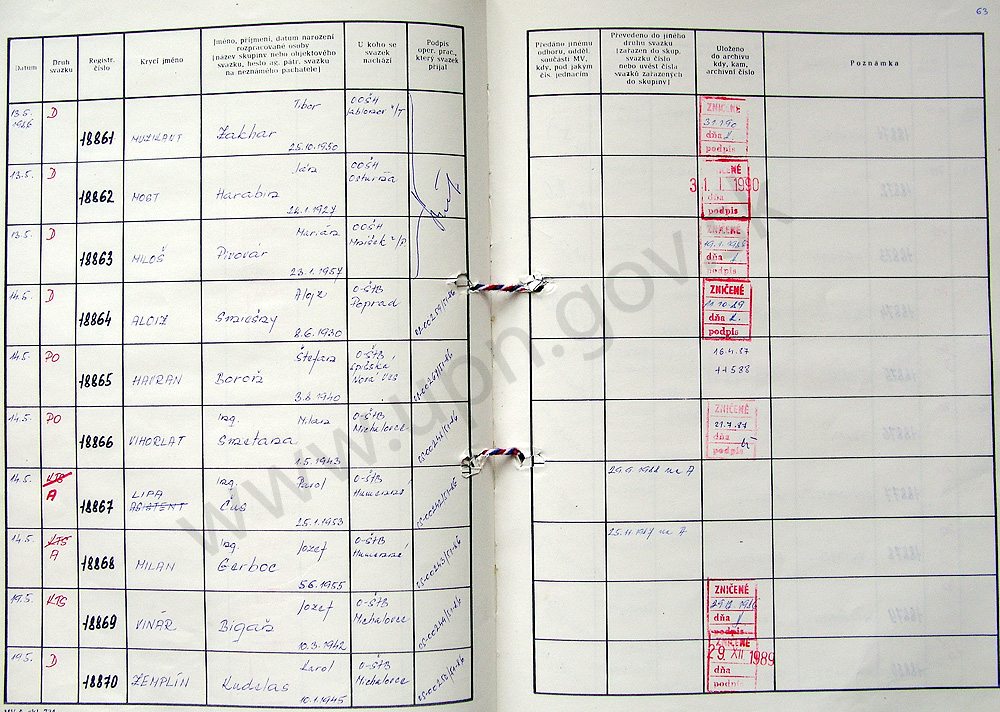 63
Datum
Druh
svazku
Registr.
číslo
Krycí jméno
Jméno, příjmení, datum narození
rozpracované osoby
[název skupiny nebo objektového
svazku, heslo ag. pátr. svazku
na neznámého pachatele]
U koho se
svazek
nachází
Podpis
oper. prac.,
který svazek
přijal
Předáno jinému
odboru, odděl.
součásti MV,
kdy, pod jakým
čís. jednacím
Převedeno do jiného
druhu svazku
[zařazen do skup.
svazku číslo
nebo uvést čísla
svazků zařazených
do skupiny]
Uloženo
do archivu
kdy, kam,
archivní číslo
Poznámka
13.5.
1986
D
18861
MUZIKANT
Tibor
Zakhar
25.10.1950
OOŠH
ZNIČENÉ
dňa
podpis
13.5.
D
18862
MOST
Harabin
24.1.1927
OOŠH
ZNIČENÉ
31. I. 1990
dňa
podpis
13.5.
D
18863
MILOŠ
Marián
Pivovár
23.1.1957
OOŠH
ZNIČENÉ
dňa
podpis
14.5.
D
18864
ALOIZ
Alojz
Smiešny
8.6.1930
O-ŠTB
Poprad
ZNIČENÉ
11.10.89
dňa
podpis
14.5.
PO
18865
HAVRAN
Štefan
Boroň
3.8.1940
O-ŠTB
Spišská
Nová Ves
16.4.87
11588
14.5.
PO
18866
VIHORLAT
Ing. Milan
Smetana
1.5.1943
O-ŠTB
Michalovce
ZNIČENÉ
21.7.87
dňa
podpis
14.5.
KTS
A
18867
LIPA
ASISTENT
Ing. Karol
Čus
25.1.1953
O-ŠTB
Humenné
na A
14.5.
KTS
A
18868
MILAN
Ing. Jozef
Gerboc
5.6.1955
O-ŠTB
Humenné
25.11.1987 na A
19.5.
KTS
18869
VINÁR
Jozef
Bigaň
10.3.1942
O-ŠTB
Michalovce
ZNIČENÉ
dňa
podpis
19.5.
D
18870
ZEMPLÍN
Karol
Kudelas
10.1.1945
O-ŠTB
Michalovce
29. XII 1989
dňa
podpis
www.upn.gov.sk